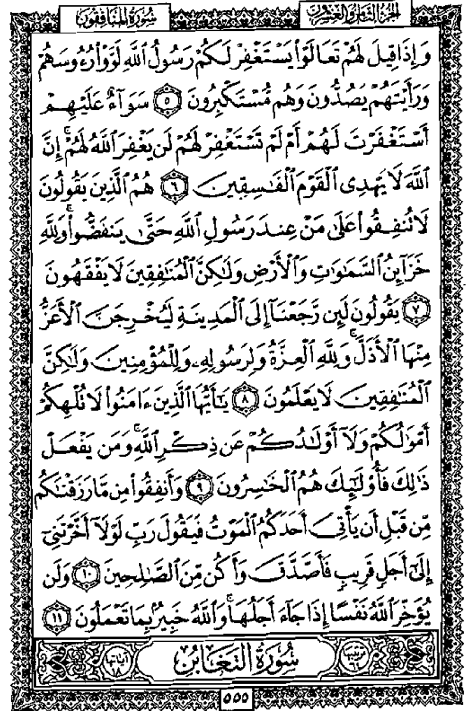 سُورَةُ المُنَافِقُونَ
الجُزْءُ الثَّامِنُ وَالعِشْرُونَ
وَإِذَا قِيلَ لَهُمْ تَعَالَوْا۟ يَسْتَغْفِرْ لَكُمْ رَسُولُ ٱللَّهِ لَوَّوْا۟ رُءُوسَهُمْ
وَرَأَيْتَهُمْ يَصُدُّونَ وَهُم مُّسْتَكْبِرُونَ ٥ سَوَآءٌ عَلَيْهِمْ
أَسْتَغْفَرْتَ لَهُمْ أَمْ لَمْ تَسْتَغْفِرْ لَهُمْ لَن يَغْفِرَ ٱللَّهُ لَهُمْ ۚ إِنَّ
ٱللَّهَ لَا يَهْدِى ٱلْقَوْمَ ٱلْفَـٰسِقِينَ ٦ هُمُ ٱلَّذِينَ يَقُولُونَ
لَا تُنفِقُوا۟ عَلَىٰ مَنْ عِندَ رَسُولِ ٱللَّهِ حَتَّىٰ يَنفَضُّوا۟ ۗ وَلِلَّهِ
خَزَآئِنُ ٱلسَّمَـٰوَٰتِ وَٱلْأَرْضِ وَلَـٰكِنَّ ٱلْمُنَـٰفِقِينَ لَا يَفْقَهُونَ
٧ يَقُولُونَ لَئِن رَّجَعْنَآ إِلَى ٱلْمَدِينَةِ لَيُخْرِجَنَّ ٱلْأَعَزُّ
مِنْهَا ٱلْأَذَلَّ ۚ وَلِلَّهِ ٱلْعِزَّةُ وَلِرَسُولِهِۦ وَلِلْمُؤْمِنِينَ وَلَـٰكِنَّ
ٱلْمُنَـٰفِقِينَ لَا يَعْلَمُونَ ٨ يَـٰٓأَيُّهَا ٱلَّذِينَ ءَامَنُوا۟ لَا تُلْهِكُمْ
أَمْوَٰلُكُمْ وَلَآ أَوْلَـٰدُكُمْ عَن ذِكْرِ ٱللَّهِ ۚ وَمَن يَفْعَلْ
ذَٰلِكَ فَأُو۟لَـٰٓئِكَ هُمُ ٱلْخَـٰسِرُونَ ٩ وَأَنفِقُوا۟ مِن مَّا رَزَقْنَـٰكُم
مِّن قَبْلِ أَن يَأْتِىَ أَحَدَكُمُ ٱلْمَوْتُ فَيَقُولَ رَبِّ لَوْلَآ أَخَّرْتَنِىٓ
إِلَىٰٓ أَجَلٍ قَرِيبٍ فَأَصَّدَّقَ وَأَكُن مِّنَ ٱلصَّـٰلِحِينَ ١٠ وَلَن
يُؤَخِّرَ ٱللَّهُ نَفْسًا إِذَا جَآءَ أَجَلُهَا ۚ وَٱللَّهُ خَبِيرٌۢ بِمَا تَعْمَلُونَ ١١
سُورَةُ التَّغَابُنِ
آياتها ١٨
٥٥٥